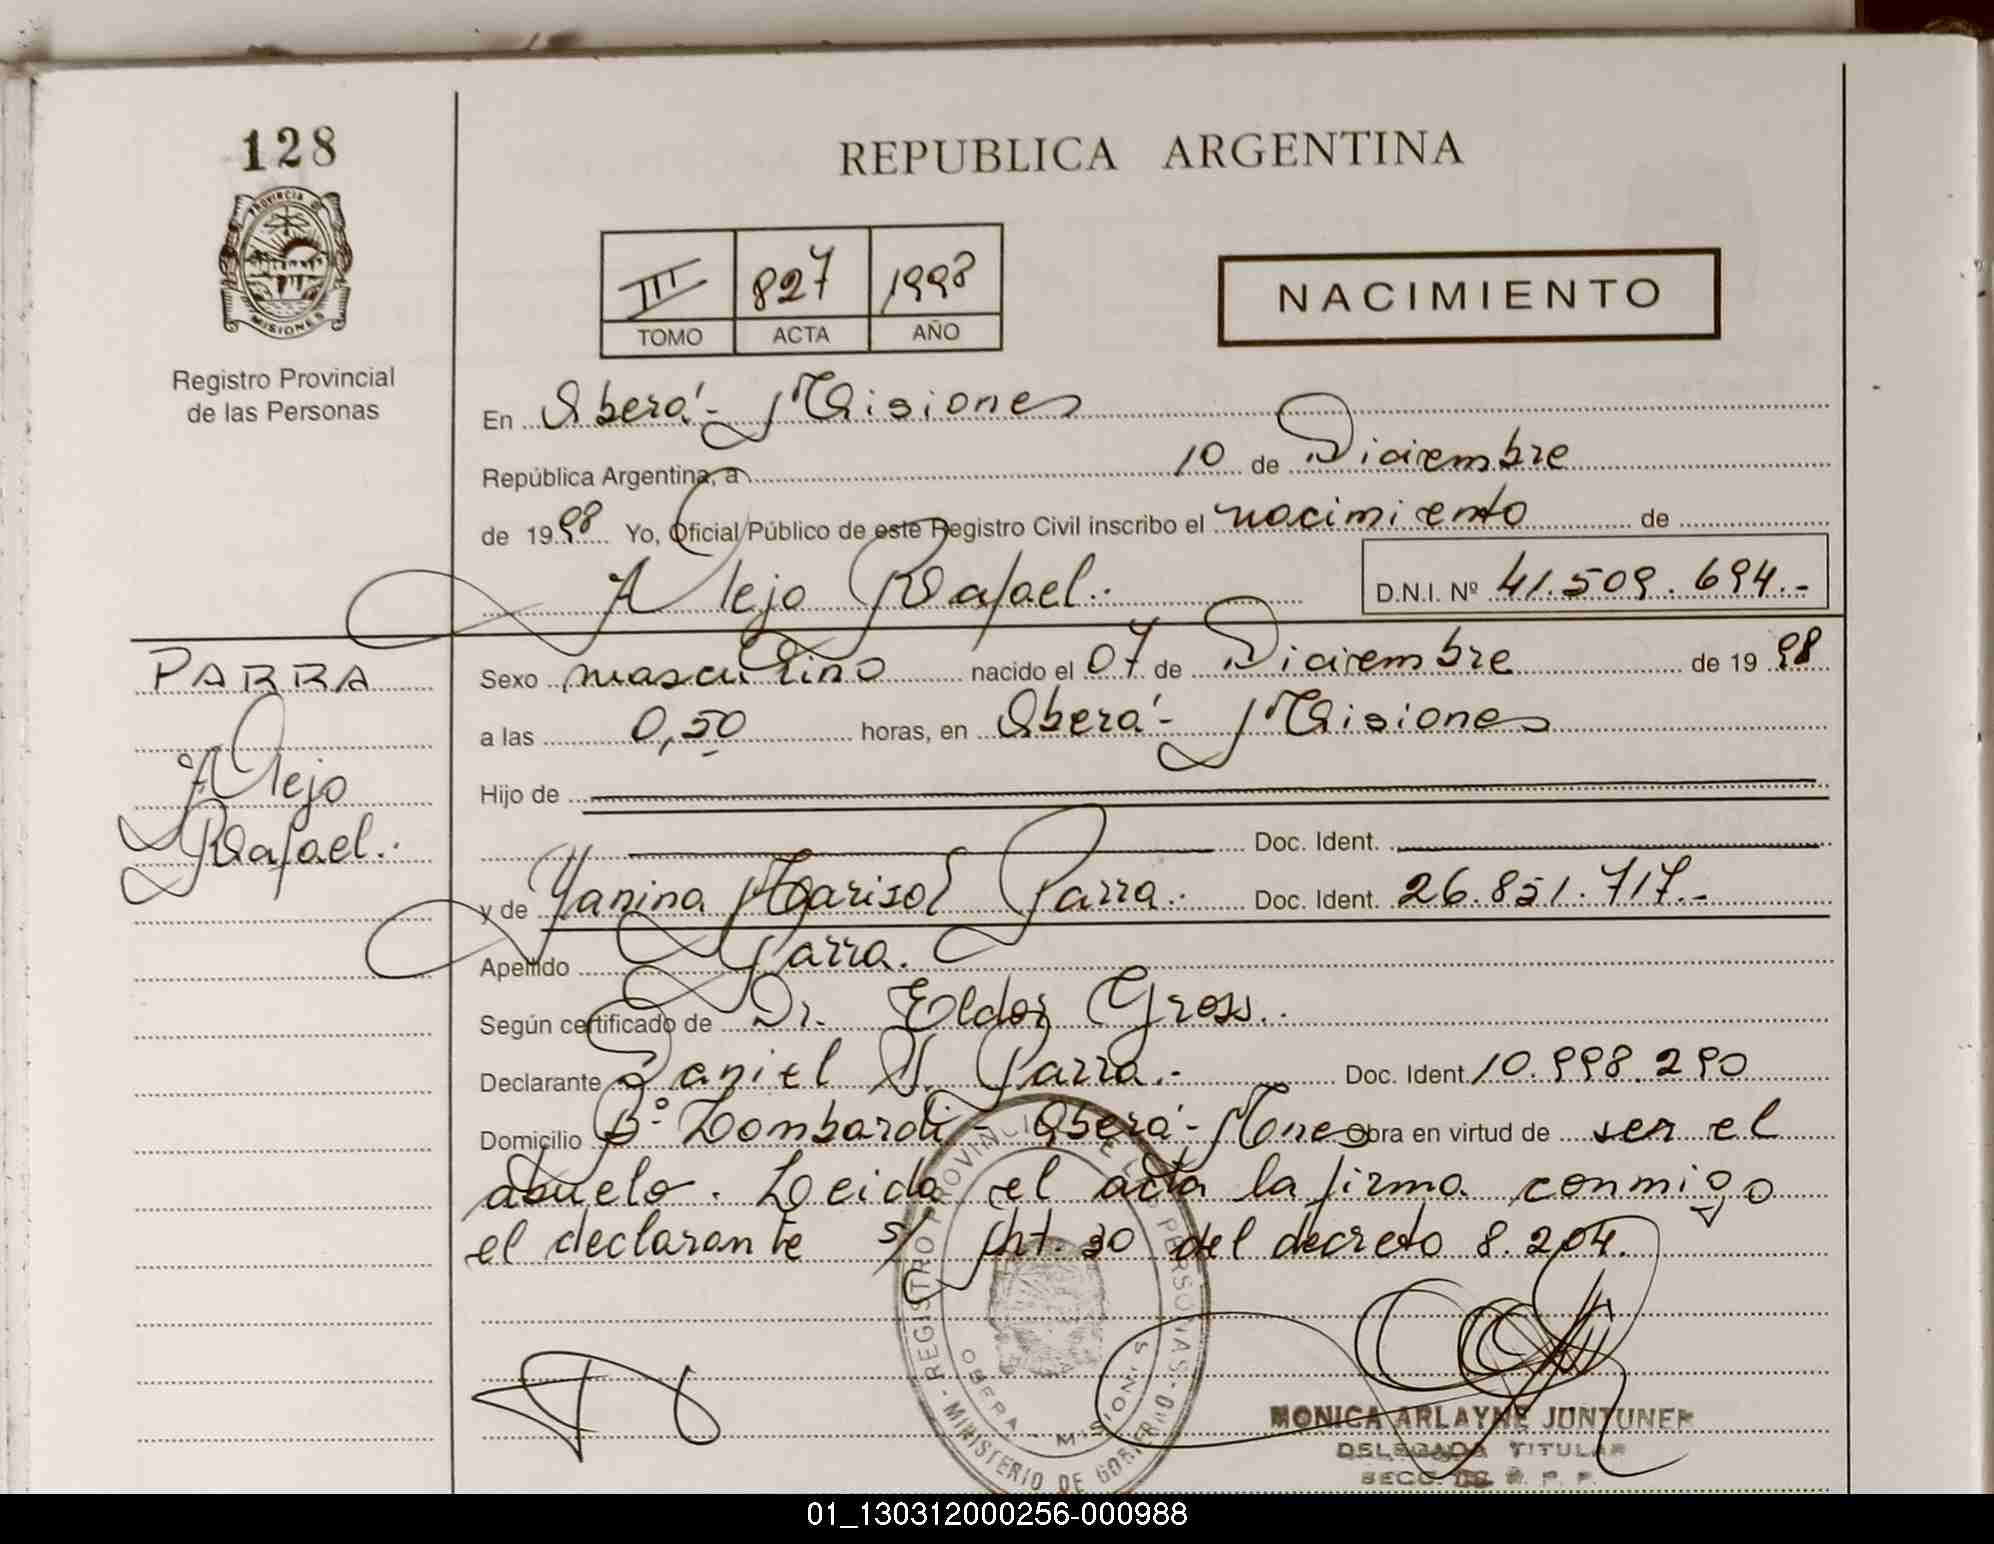 128
PROVINCIA D
MISIONES
Registro Provincial
de las Personas
REPUBLICA ARGENTINA
III 827 1998
TOMO ACTA AÑO
NACIMIENTO
En Oberá - Misiones
República Argentina, a 10 de Diciembre
de 1998 Yo, Oficial Público de este Registro Civil inscribo el nacimiento de
Alejo Rafael.-
D.N.I. Nº 41.509.694.-
PARRA
Alejo
Rafael.-
Sexo masculino nacido el 07 de Diciembre de 1998
a las 0,50 horas, en Oberá - Misiones
Hijo de
Doc. Ident.
y de Yanina Marisol Parra.- Doc. Ident. 26.851.717.-
Apellido Parra.
Según certificado de Dr. Eldor Gross.-
Declarante Daniel Parra.- Doc. Ident. 10.998.290
Domicilio Bº Lombardi - Oberá - Mnes Obra en virtud de ser el
abuelo. Leida el acta la firma conmigo
el declarante s/ Art. 30 del decreto 8.204.
REGISTRO PROVINCIAL DE LAS PERSONAS - MINISTERIO DE GOBIERNO
OBERA - MISIONES
MONICA ARLAYNE JUNTUNEN
DELEGADA TITULAR
SECC. R. P. P.
01_130312000256-000988